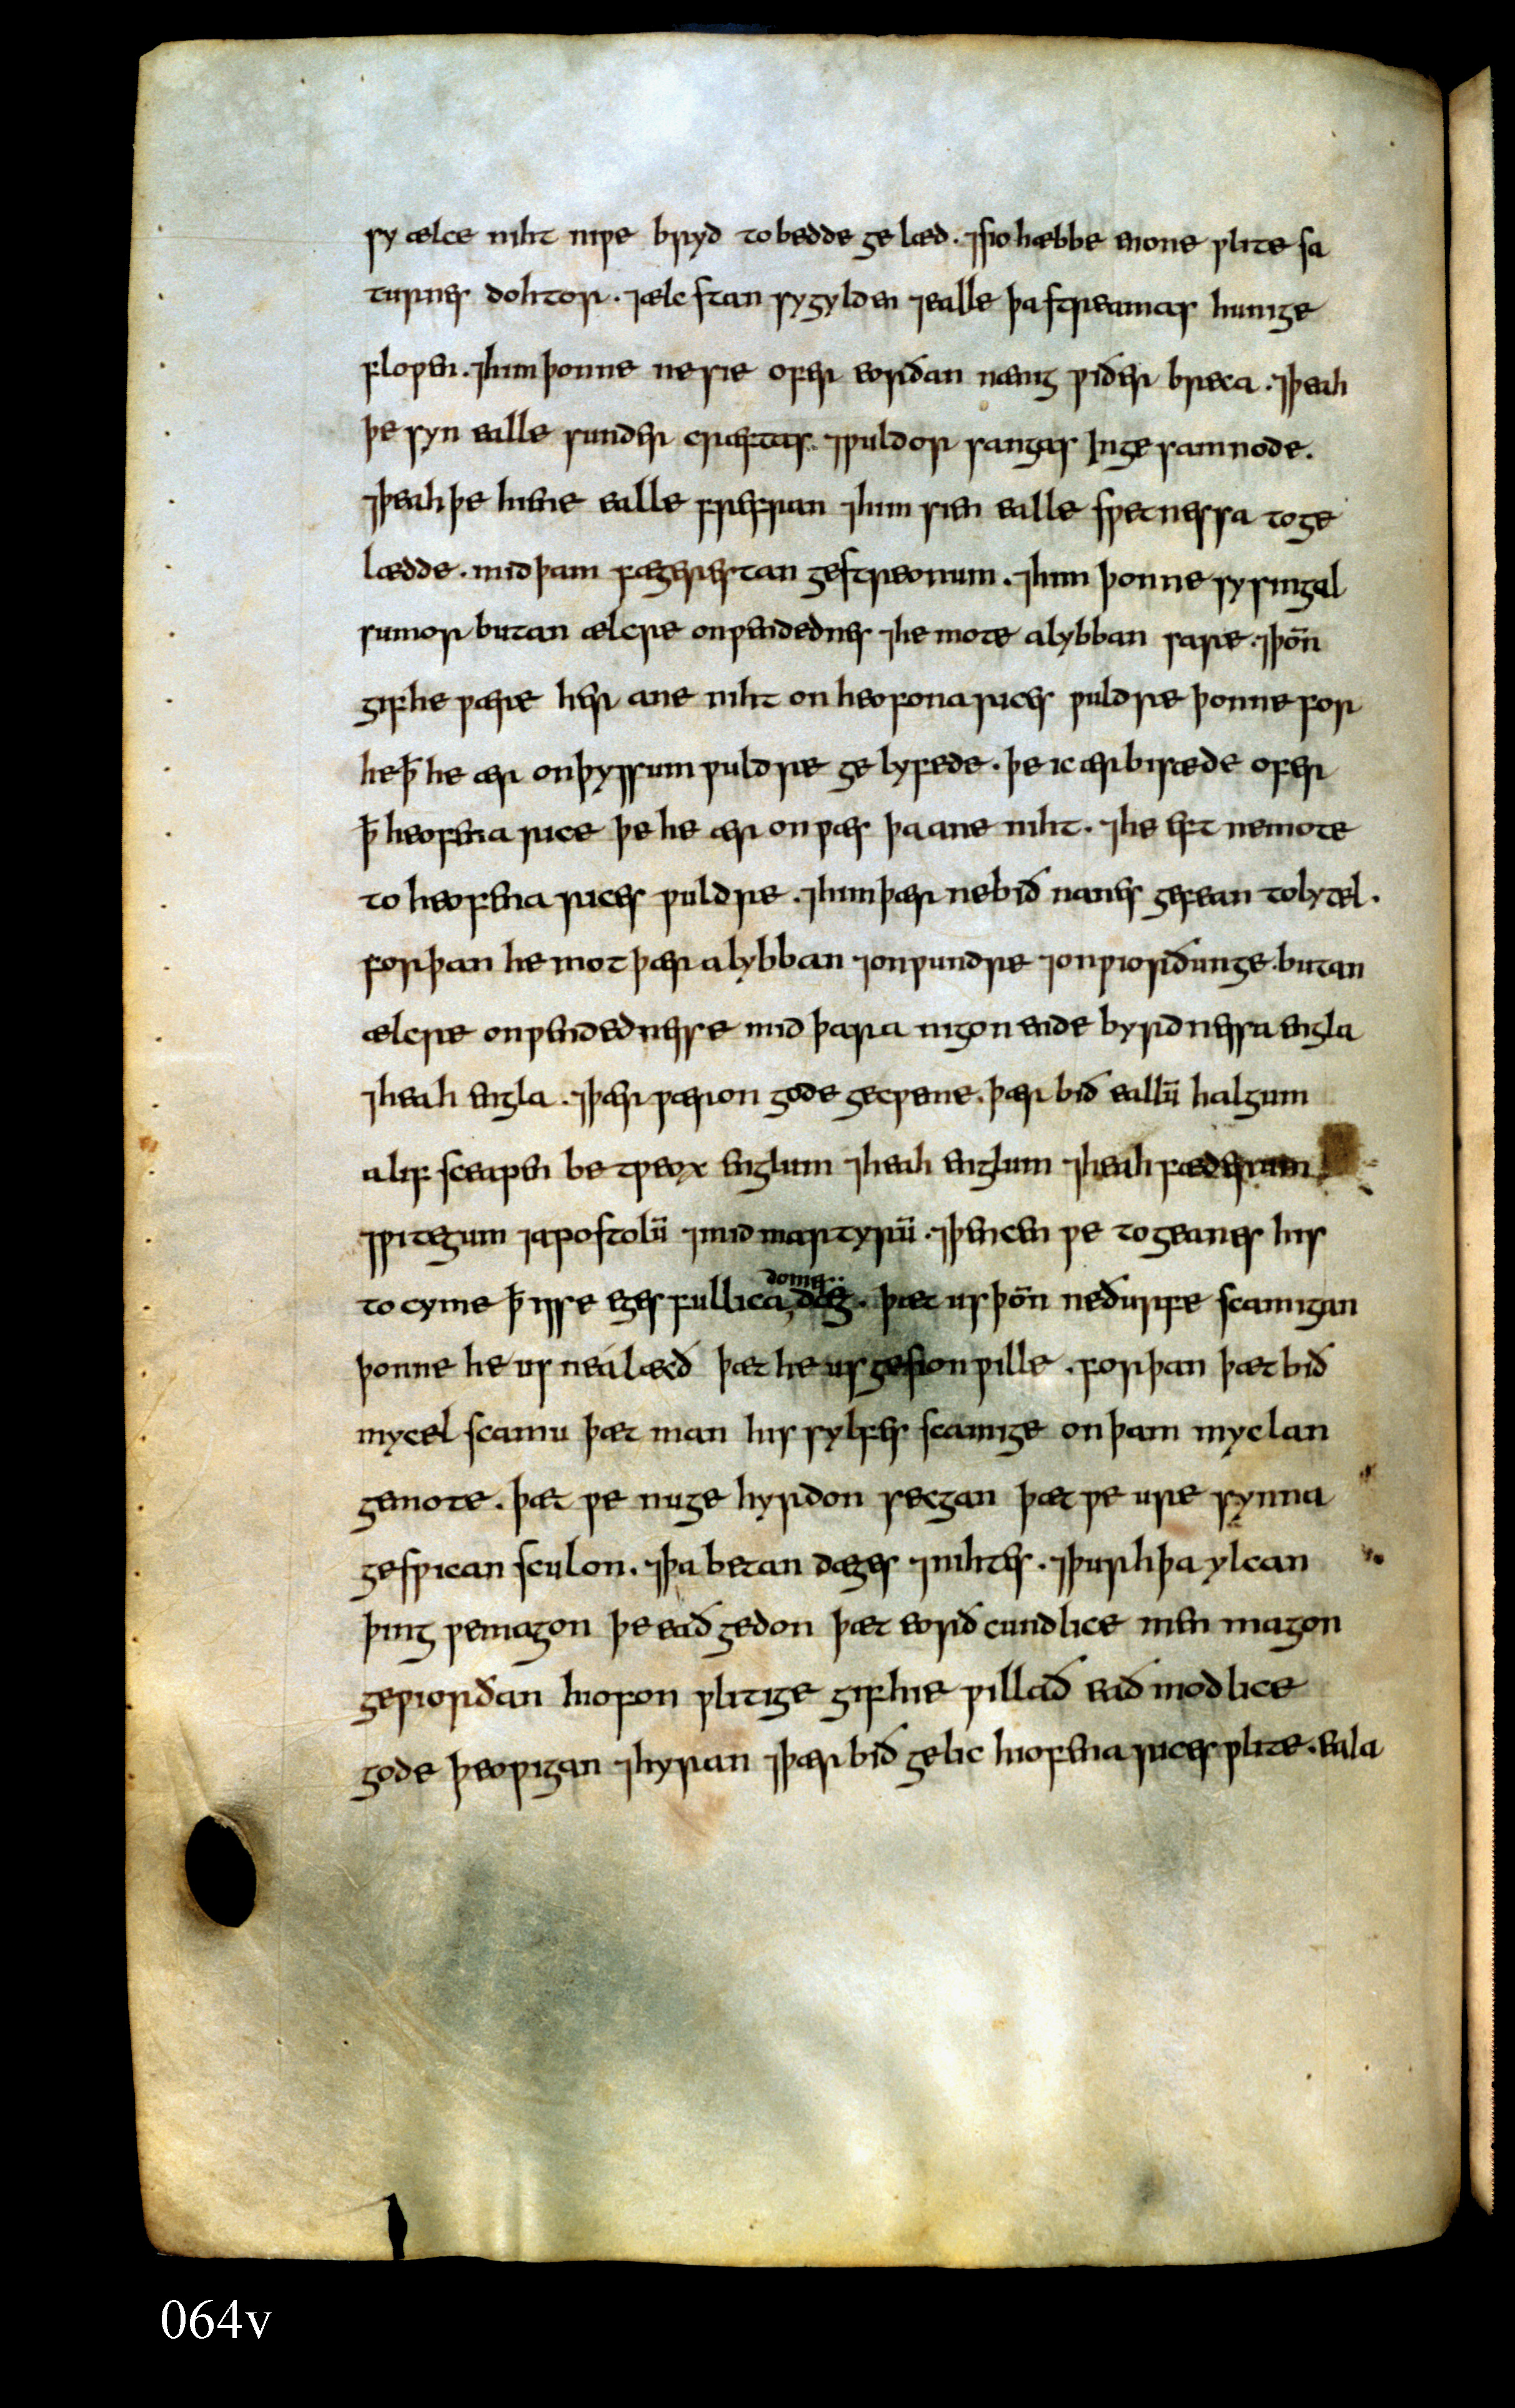 sy ælce niht niƿe bryd to bedde gelæd. ⁊ sio hæbbe eione ƿlite sa
turnes dohtor. ⁊ ælc stan sy gylden ⁊ ealle þa streamas hunige
floƿen. ⁊ him þonne ne sie ofer eorðan nænig ƿiðerbreca. ⁊ þeah
þe syn ealle sundercræftas ⁊ ƿuldorsangas in gesamnode.
⁊ þeah þe hiene ealle frefran ⁊ him sien ealle sƿetnessa to ge
lædde. mid þam fægerestan gestreonum. ⁊ him þonne sy singal
sumor butan ælcre onƿendednes ⁊ he mote a lybban sare. ⁊ þoñ
gif he ƿære her ane niht on heofona rices ƿuldre þonne for
he þ̄ he ær on þyssum ƿuldre gelyfede. þe ic ær bisæde ofer
þ̄ heofena rice þe he ær on ƿæs þa ane niht. ⁊ he eft ne mote
to heofena rices ƿuldre. ⁊ him þær ne bið nanes gefean to lytel.
for þan he mot þær a lybban ⁊ on ƿundre ⁊ on ƿiorðunge. butan
ælcre onƿendednesse mid þara nigon endebyrdnessa engla
⁊ heahengla. ⁊ þær ƿæron gode gecƿeme. þær bið eallū halgum
a lif sceapen betƿeox englum ⁊ heahenglum ⁊ heahfæderum
⁊ ƿitegum ⁊ apostolū ⁊ mid martyrū. ⁊ þencen ƿe togeanes his
tocyme þ̄ is se egesfullica dæg. þæt us þoñ ne ðurfe scamigan
domes
þonne he us neálæcð þæt he us gesion ƿille. for þan þæt bið
mycel scamu þæt man his sylfes scamige on þam myclan
gemote. þæt ƿe nu gehyrdon secgan þæt ƿe ure synna
gesƿican sculon. ⁊ þa betan dæges ⁊ nihtes. ⁊ þurh þa ylcan
þing ƿe magon þe eað gedon þæt eorðcundlice men magon
geƿiorðan hiofonƿlitige gif hie ƿillað eaðmodlice
gode þeoƿigan ⁊ hyran ⁊ þær bið gelic hiofena rices ƿlite. Eala
064v